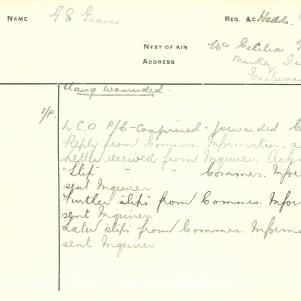 NAME G S Graves REG. &C. Hedds.
NEXT OF KIN Mrs Cecilia G
ADDRESS
Eastwood
Dang wounded.
L C O P/C confirmed - forwarded C
Reply from Commes. Information s
Letter received from Inquirer. Ackn
"Slip" " " Commes. Info
sent Inquirer
Further slips from Commes. Inform
sent Inquirer.
Later slips from Commes. Informa
sent Inquirer